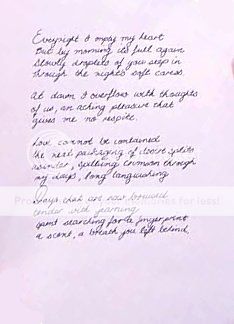 Everynight I empty my heart
But by morning its full again
Slowly droplets of you seep in
through the night's soft caress

At dawn I overflow with thoughts
of us, an aching pleasure that
gives me no respite.

Love cannot be contained
the neat packaging of desire splits
asunder, spilling crimson through
my days, long languishing

days that are now bruised
tender with yearning
spent searching for a fingerprint
a scent, a breath you left behind.